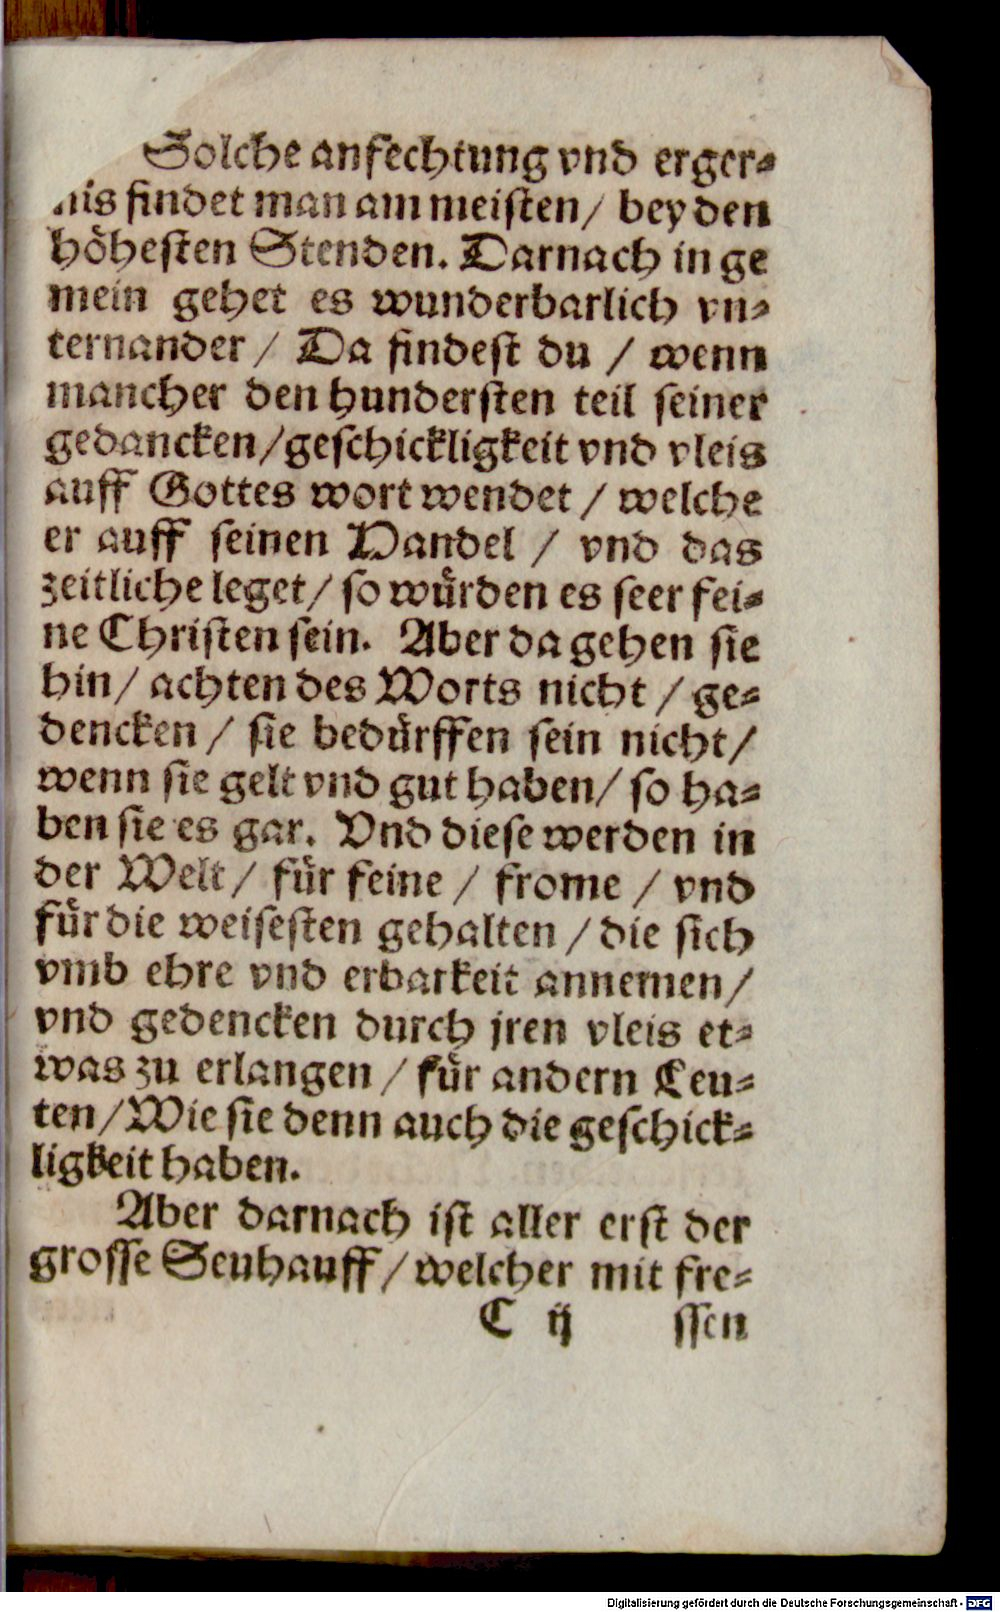 Solche anfechtung vnd erger⸗
nis findet man am meisten/ bey den
höhesten Stenden. Darnach in ge
mein gehet es wunderbarlich vn⸗
ternander / Da findest du / wenn
mancher den hundersten teil seiner
gedancken/geschickligkeit vnd vleis
auff Gottes wort wendet / welche
er auff seinen Handel / vnd das
zeitliche leget/ so würden es seer fei⸗
ne Christen sein. Aber da gehen sie
hin/ achten des Worts nicht / ge⸗
dencken / sie bedürffen sein nicht/
wenn sie gelt vnd gut haben/ so ha⸗
ben sie es gar. Vnd diese werden in
der Welt/ für feine / frome / vnd
für die weisesten gehalten / die sich
vmb ehre vnd erbarkeit annemen/
vnd gedencken durch jren vleis et⸗
was zu erlangen / für andern Leu⸗
ten/Wie sie denn auch die geschick⸗
ligkeit haben.
Aber darnach ist aller erst der
grosse Seuhauff/welcher mit fre⸗
C ij ssen
Digitalisierung gefördert durch die Deutsche Forschungsgemeinschaft - DFG